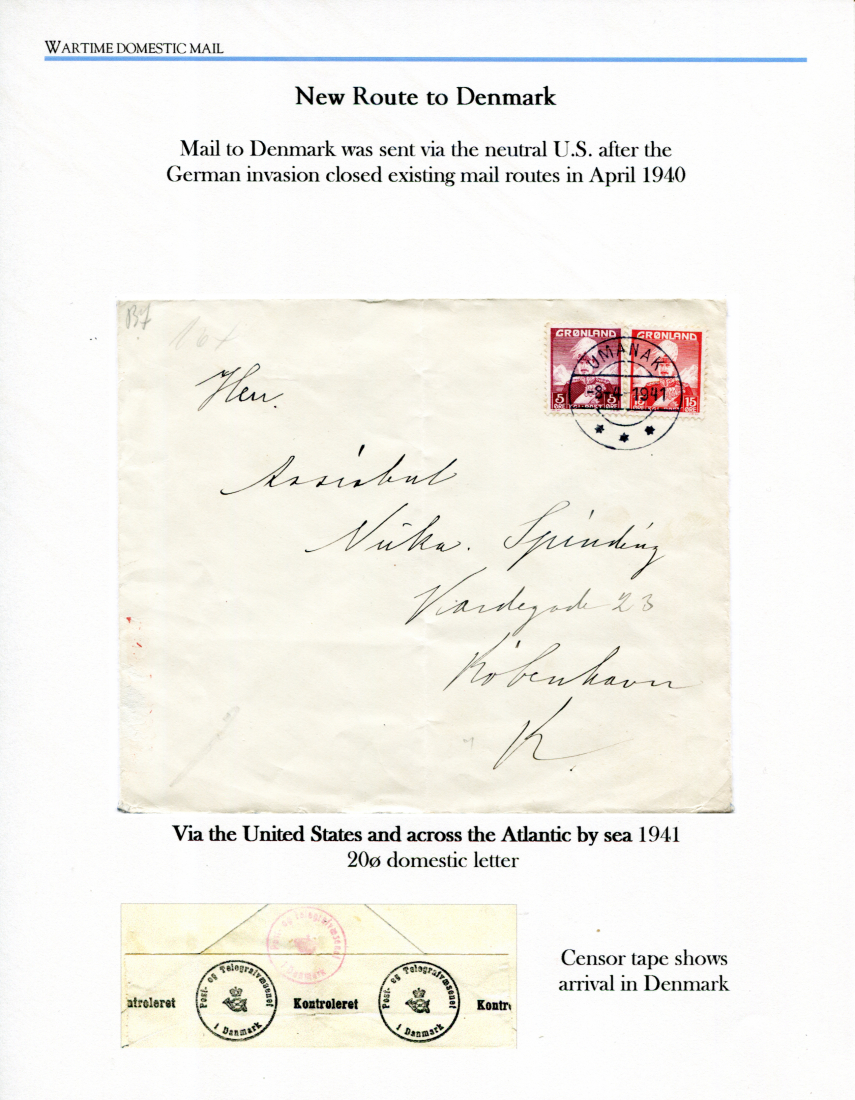 WARTIME DOMESTIC MAIL
New Route to Denmark
Mail to Denmark was sent via the neutral U.S. after the
German invasion closed existing mail routes in April 1940
B7
GRØNLAND GRØNLAND
UMANAK
-8-4-1941
5 5 15 15
ØRE ØRE
Herr.
Nuka. Spinding
23
København
K.
Via the United States and across the Atlantic by sea 1941
20ø domestic letter
Post- og Telegrafvæsenet
i Danmark
Post- og Telegrafvæsenet i Danmark
Kontroleret
Post- og Telegrafvæsenet i Danmark
ntroleret
Kontr
Censor tape shows
arrival in Denmark